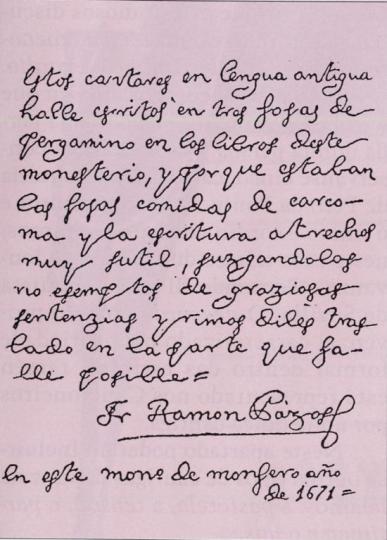 Estos cantares en lengua antigua
halle escritos en tres fojas de
pergamino en los libros deste
monesterio, y porque estaban
las fojas comidas de carco-
ma y la escritura a trechos
muy sutil, juzgandolos
no esemptos de graziosas
sentenzias y rimos diles tras
lado en la parte que fa-
lle posille =
Fr Ramon
En este mono de monfero año
de 1671 =